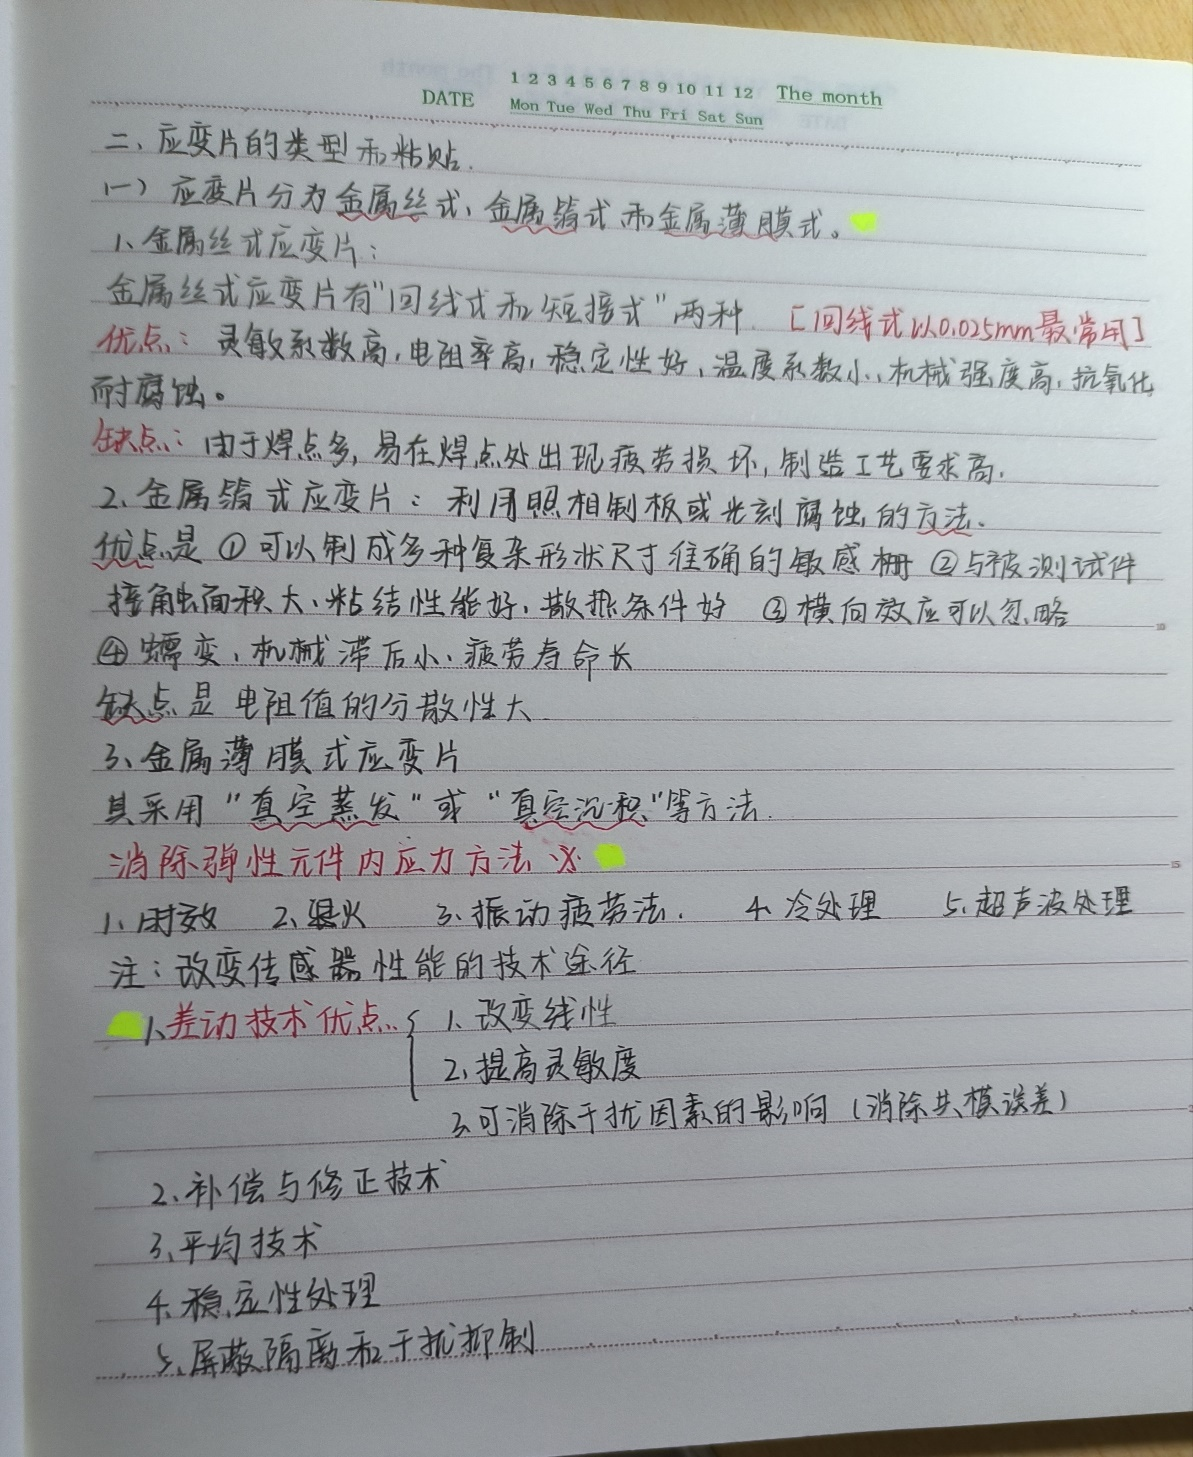 1 2 3 4 5 6 7 8 9 10 11 12 The month
DATE Mon Tue Wed Thu Fri Sat Sun
二、应变片的类型和粘贴.
(一) 应变片分为金属丝式、金属箔式和金属薄膜式。
1、金属丝式应变片：
金属丝式应变片有"回线式和短接式"两种. [回线式以0.025mm最常用]
优点：灵敏系数高,电阻率高,稳定性好、温度系数小、机械强度高,抗氧化
耐腐蚀。
缺点：由于焊点多,易在焊点处出现疲劳损坏,制造工艺要求高.
2、金属箔式应变片：利用照相制板或光刻腐蚀的方法.
优点是 ①可以制成多种复杂形状尺寸准确的敏感栅 ②与被测试件
接触面积大、粘结性能好、散热条件好 ③横向效应可以忽略
④蠕变、机械滞后小、疲劳寿命长
缺点是 电阻值的分散性大.
3、金属薄膜式应变片
其采用"真空蒸发"或"真空沉积"等方法.
消除弹性元件内应力方法 ※
1、时效 2、退火 3、振动疲劳法. 4、冷处理 5、超声波处理
注：改变传感器性能的技术途径
1、差动技术优点: { 1、改变线性
2、提高灵敏度
3、可消除干扰因素的影响 (消除共模误差)
2、补偿与修正技术
3、平均技术
4、稳定性处理
5、屏蔽隔离和干扰抑制